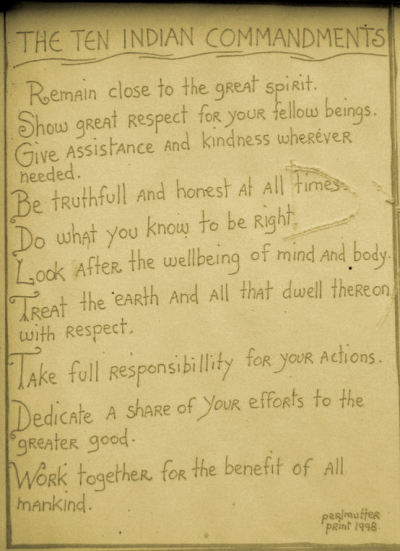 THE TEN INDIAN COMMANDMENTS
Remain close to the great spirit.
Show great respect for your fellow beings.
Give assistance and kindness wherever
needed.
Be truthfull and honest at all times.
Do what you know to be right.
Look after the wellbeing of mind and body.
Treat the earth and all that dwell thereon
with respect.
Take full responsibillity for your actions.
Dedicate a share of your efforts to the
greater good.
Work together for the benefit of all
mankind.
perlmutter
print 1998